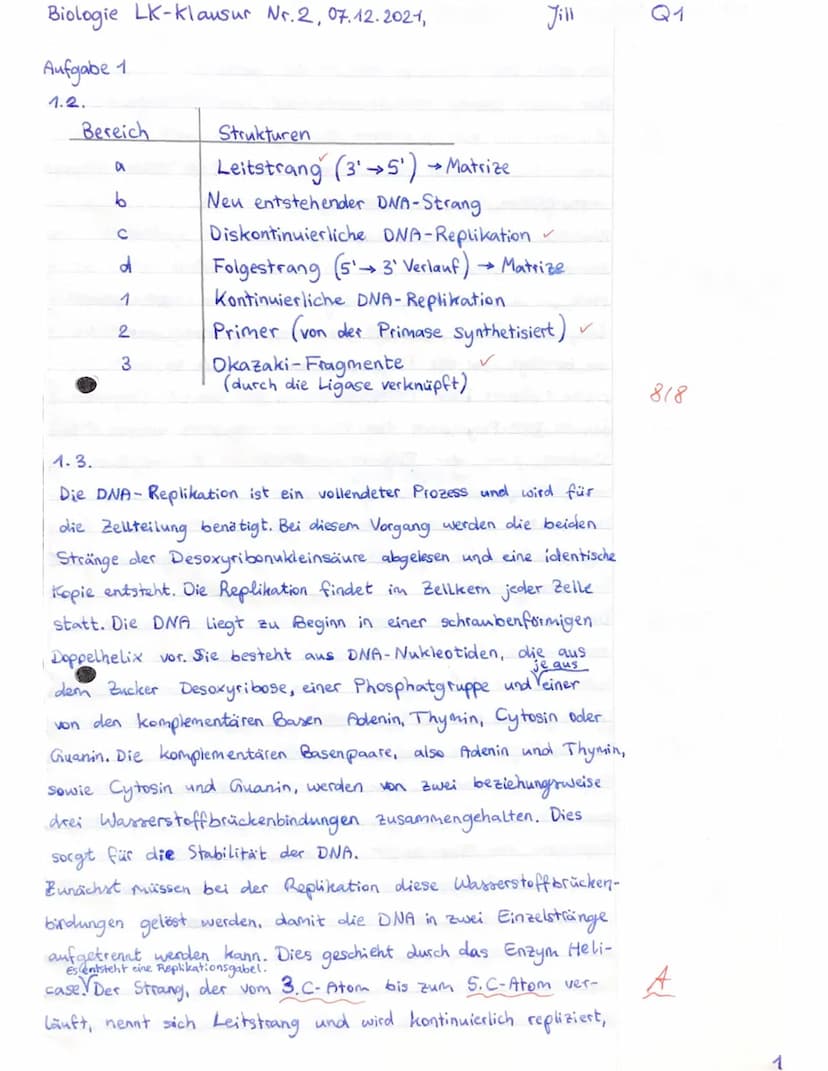 Biologie LK-Klausur Nr. 2, 07.12.2021, Jill Q1
Aufgabe 1
1.2.
Bereich Strukturen
a Leitstrang (3'→5') → Matrize
b Neu entstehender DNA-Strang
c Diskontinuierliche DNA-Replikation
d Folgestrang (5'→ 3' Verlauf) → Matrize
1 Kontinuierliche DNA-Replikation
2 Primer (von der Primase synthetisiert)
3 Okazaki-Fragmente
(durch die Ligase verknüpft)
8/8
1.3.
Die DNA-Replikation ist ein vollendeter Prozess und wird für
die Zellteilung benötigt. Bei diesem Vorgang werden die beiden
Stränge der Desoxyribonukleinsäure abgelesen und eine identische
Kopie entsteht. Die Replikation findet im Zellkern jeder Zelle
statt. Die DNA liegt zu Beginn in einer schraubenförmigen
Doppelhelix vor. Sie besteht aus DNA-Nukleotiden, die aus
je aus
dem Zucker Desoxyribose, einer Phosphatgruppe und einer
von den komplementären Basen Adenin, Thymin, Cytosin oder
Guanin. Die komplementären Basenpaare, also Adenin und Thymin,
sowie Cytosin und Guanin, werden von zwei beziehungsweise
drei Wasserstoffbrückenbindungen zusammengehalten. Dies
sorgt für die Stabilität der DNA.
Zunächst müssen bei der Replikation diese Wasserstoffbrücken-
bindungen gelöst werden, damit die DNA in zwei Einzelstränge
aufgetrennt werden kann. Dies geschieht durch das Enzym Heli-
es entsteht eine Replikationsgabel.
case. Der Strang, der vom 3.C-Atom bis zum 5.C-Atom ver- A
läuft, nennt sich Leitstrang und wird kontinuierlich repliziert,
1